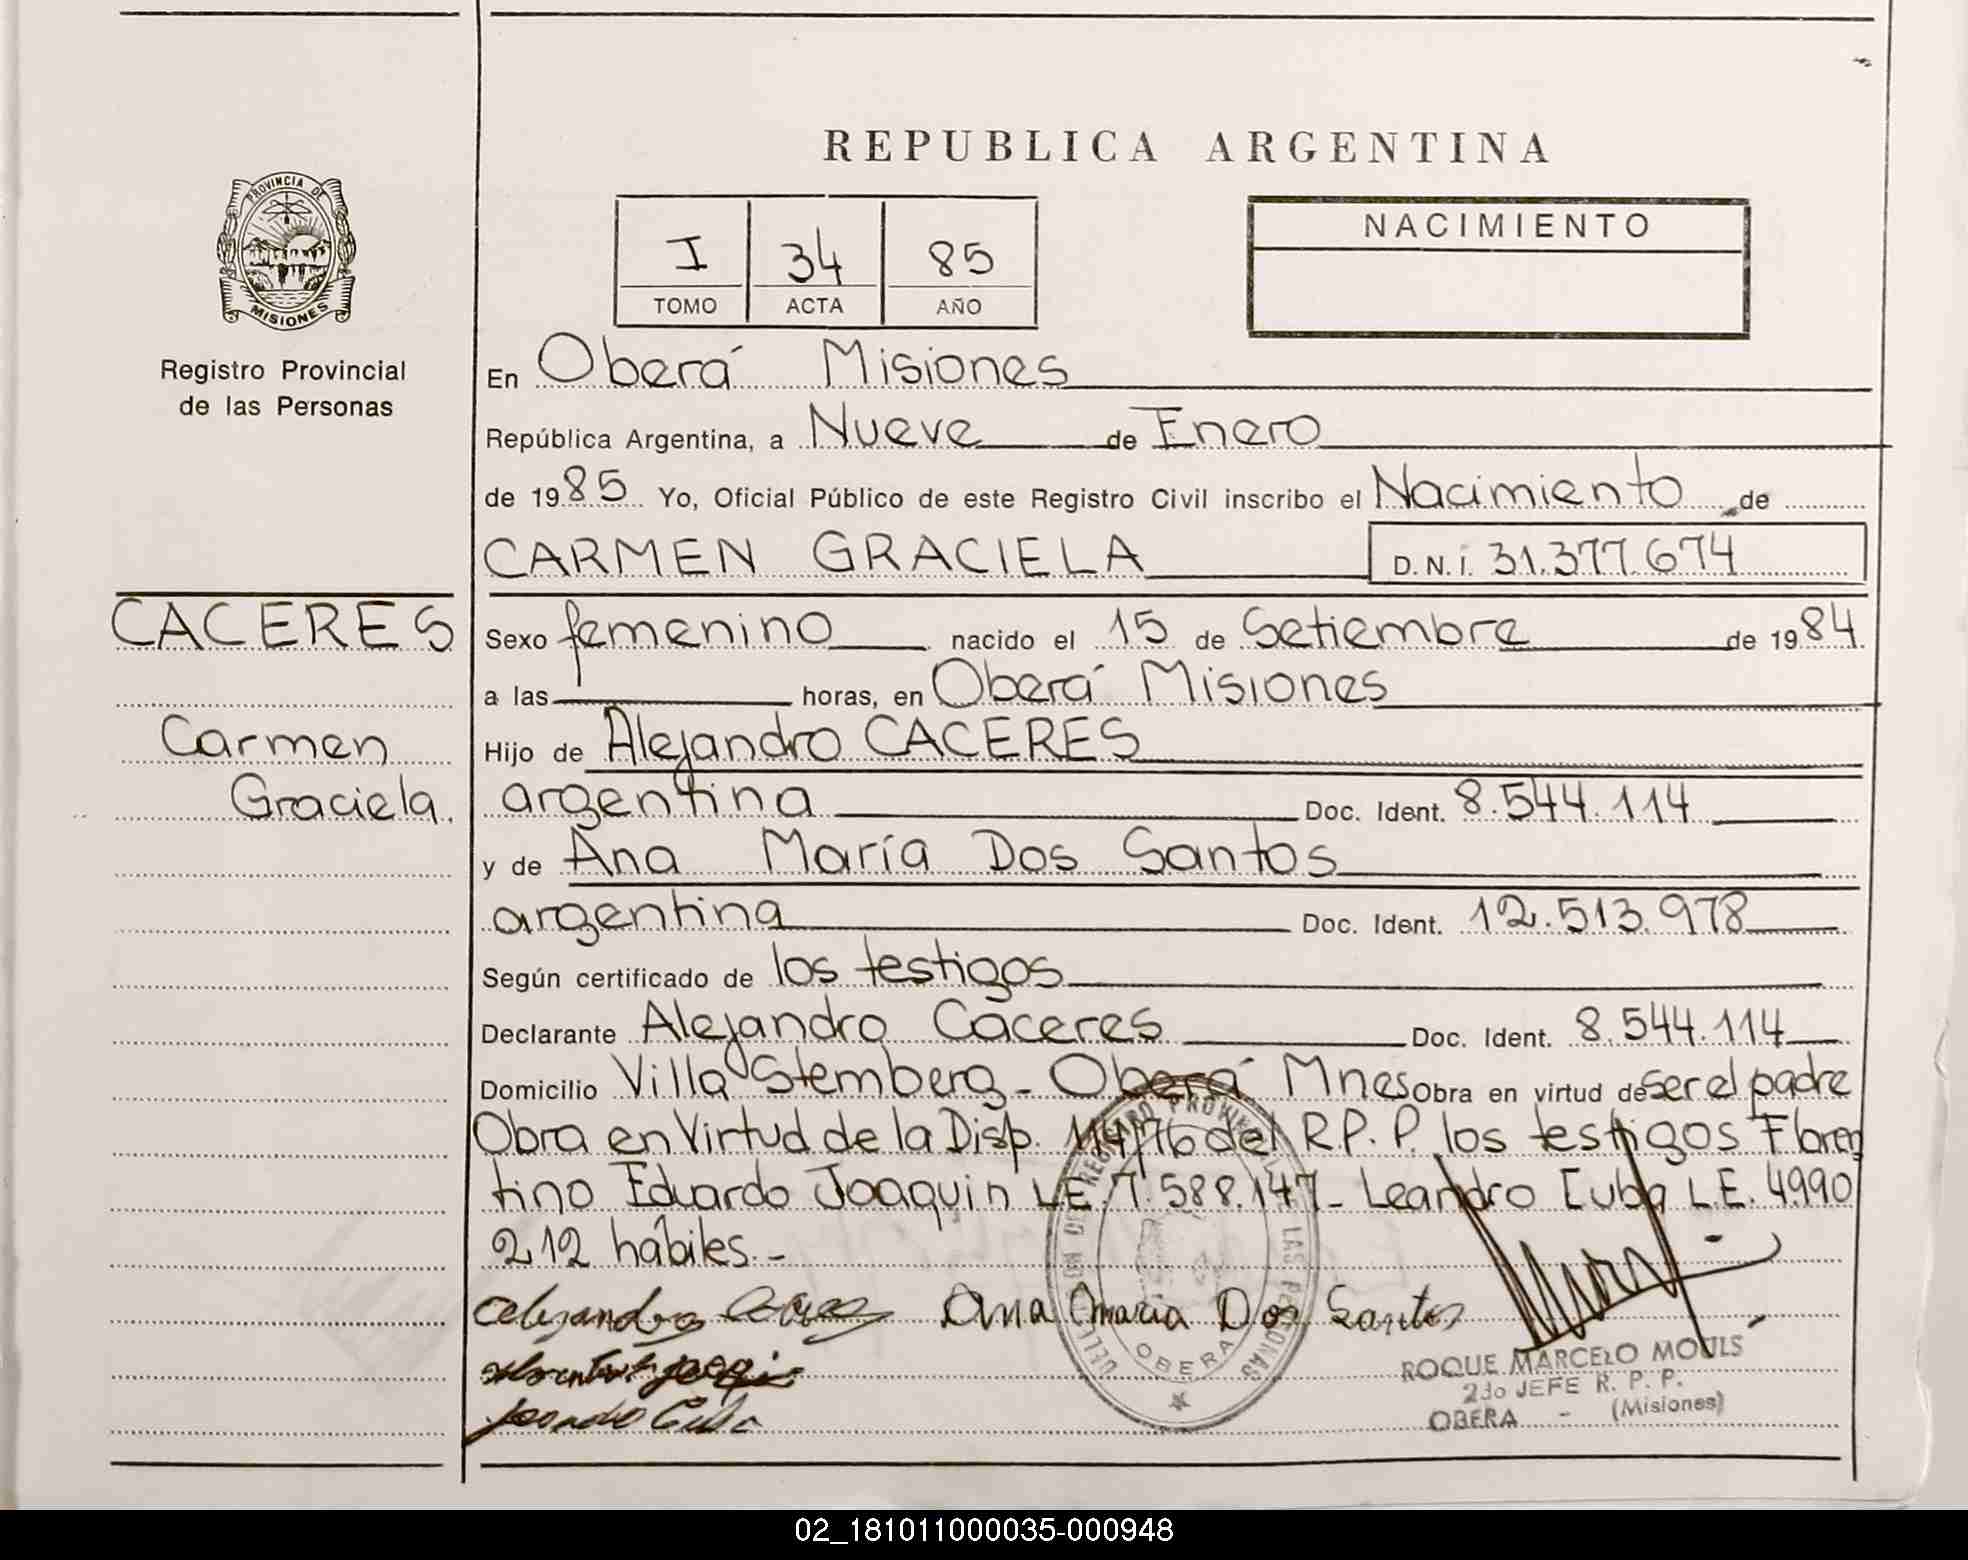 REPUBLICA ARGENTINA
PROVINCIA DE
MISIONES
Registro Provincial
de las Personas
I 34 85
TOMO ACTA AÑO
NACIMIENTO
En Oberá Misiones
República Argentina, a Nueve de Enero
de 1985 Yo, Oficial Público de este Registro Civil inscribo el Nacimiento de
CARMEN GRACIELA D.N.I. 31.377.674
CACERES
Carmen
Graciela.
Sexo femenino nacido el 15 de Setiembre de 1984
a las horas, en Oberá Misiones
Hijo de Alejandro CACERES
argentina Doc. Ident. 8.544.114
y de Ana María Dos Santos
argentina Doc. Ident. 12.513.978
Según certificado de los testigos
Declarante Alejandro Caceres Doc. Ident. 8.544.114
Domicilio Villa Stemberg - Oberá Mnes Obra en virtud de ser el padre
Obra en Virtud de la Disp. 114/76 del R.P.P. los testigos Floren
tino Eduardo Joaquin L.E. 7.588.147 - Leandro Cuba L.E. 4.990
212 hábiles.-
Ana Maria Dos Santos
Leandro Cuba
OBERA
ROQUE MARCELO MOULS
2do JEFE R. P. P.
OBERA - (Misiones)
02_181011000035-000948